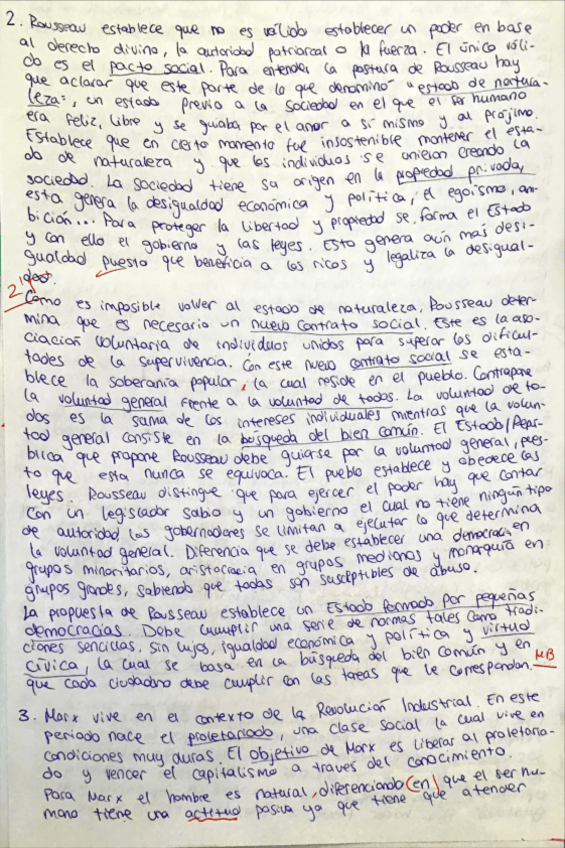 2. Rousseau establece que no es válido establecer un poder en base
al derecho divino, la autoridad patriarcal o la fuerza. El único váli-
do es el pacto social. Para entender la postura de Rousseau hay
que aclarar que este parte de lo que denomino "estado de natura-
leza", un estado previo a la sociedad en el que el ser humano
era feliz, libre y se guiaba por el amor a sí mismo y al prójimo.
Establece que en cierto momento fue insostenible mantener el esta-
do de naturaleza y que los individuos se unieron creando la
sociedad. La sociedad tiene su origen en la propiedad privada,
esta genera la desigualdad económica y política, el egoísmo, am-
bición... Para proteger la libertad y propiedad se forma el Estado
y con ello el gobierno y las leyes. Esto genera aún más desi-
gualdad puesto que beneficia a los ricos y legaliza la desigual-
dad.
Como es imposible volver al estado de naturaleza, Rousseau deter-
mina que es necesario un nuevo contrato social. Este es la aso-
ciación voluntaria de individuos unidos para superar las dificul-
tades de la supervivencia. Con este nuevo contrato social se esta-
blece la soberanía popular, la cual reside en el pueblo. Contrapone
la voluntad general frente a la voluntad de todos. La voluntad de to-
dos es la suma de los intereses individuales mientras que la volun-
tad general consiste en la búsqueda del bien común. El Estado/Repú-
blica que propone Rousseau debe guiarse por la voluntad general, pues-
to que esta nunca se equivoca. El pueblo establece y obedece las
leyes. Rousseau distingue que para ejercer el poder hay que contar
con un legislador sabio y un gobierno el cual no tiene ningún tipo
de autoridad, los gobernadores se limitan a ejecutar lo que determina
la voluntad general. Diferencia que se debe establecer una democracia en
grupos minoritarios, aristocracia en grupos medianos y monarquía en
grupos grandes, sabiendo que todas son susceptibles de abuso.
La propuesta de Rousseau establece un Estado formado por pequeñas
democracias. Debe cumplir una serie de normas tales como tradi-
ciones sencillas, sin lujos, igualdad económica y política y virtud
cívica, la cual se basa en la búsqueda del bien común y en
que cada ciudadano debe cumplir con las tareas que le correspondan. MB
3. Marx vive en el contexto de la Revolución Industrial. En este
periodo nace el proletariado, una clase social la cual vive en
condiciones muy duras. El objetivo de Marx es liberar al proletaria-
do y vencer el capitalismo a través del conocimiento.
Para Marx el hombre es natural, diferenciando (en) que el ser hu-
mano tiene una actitud pasiva ya que tiene que atender